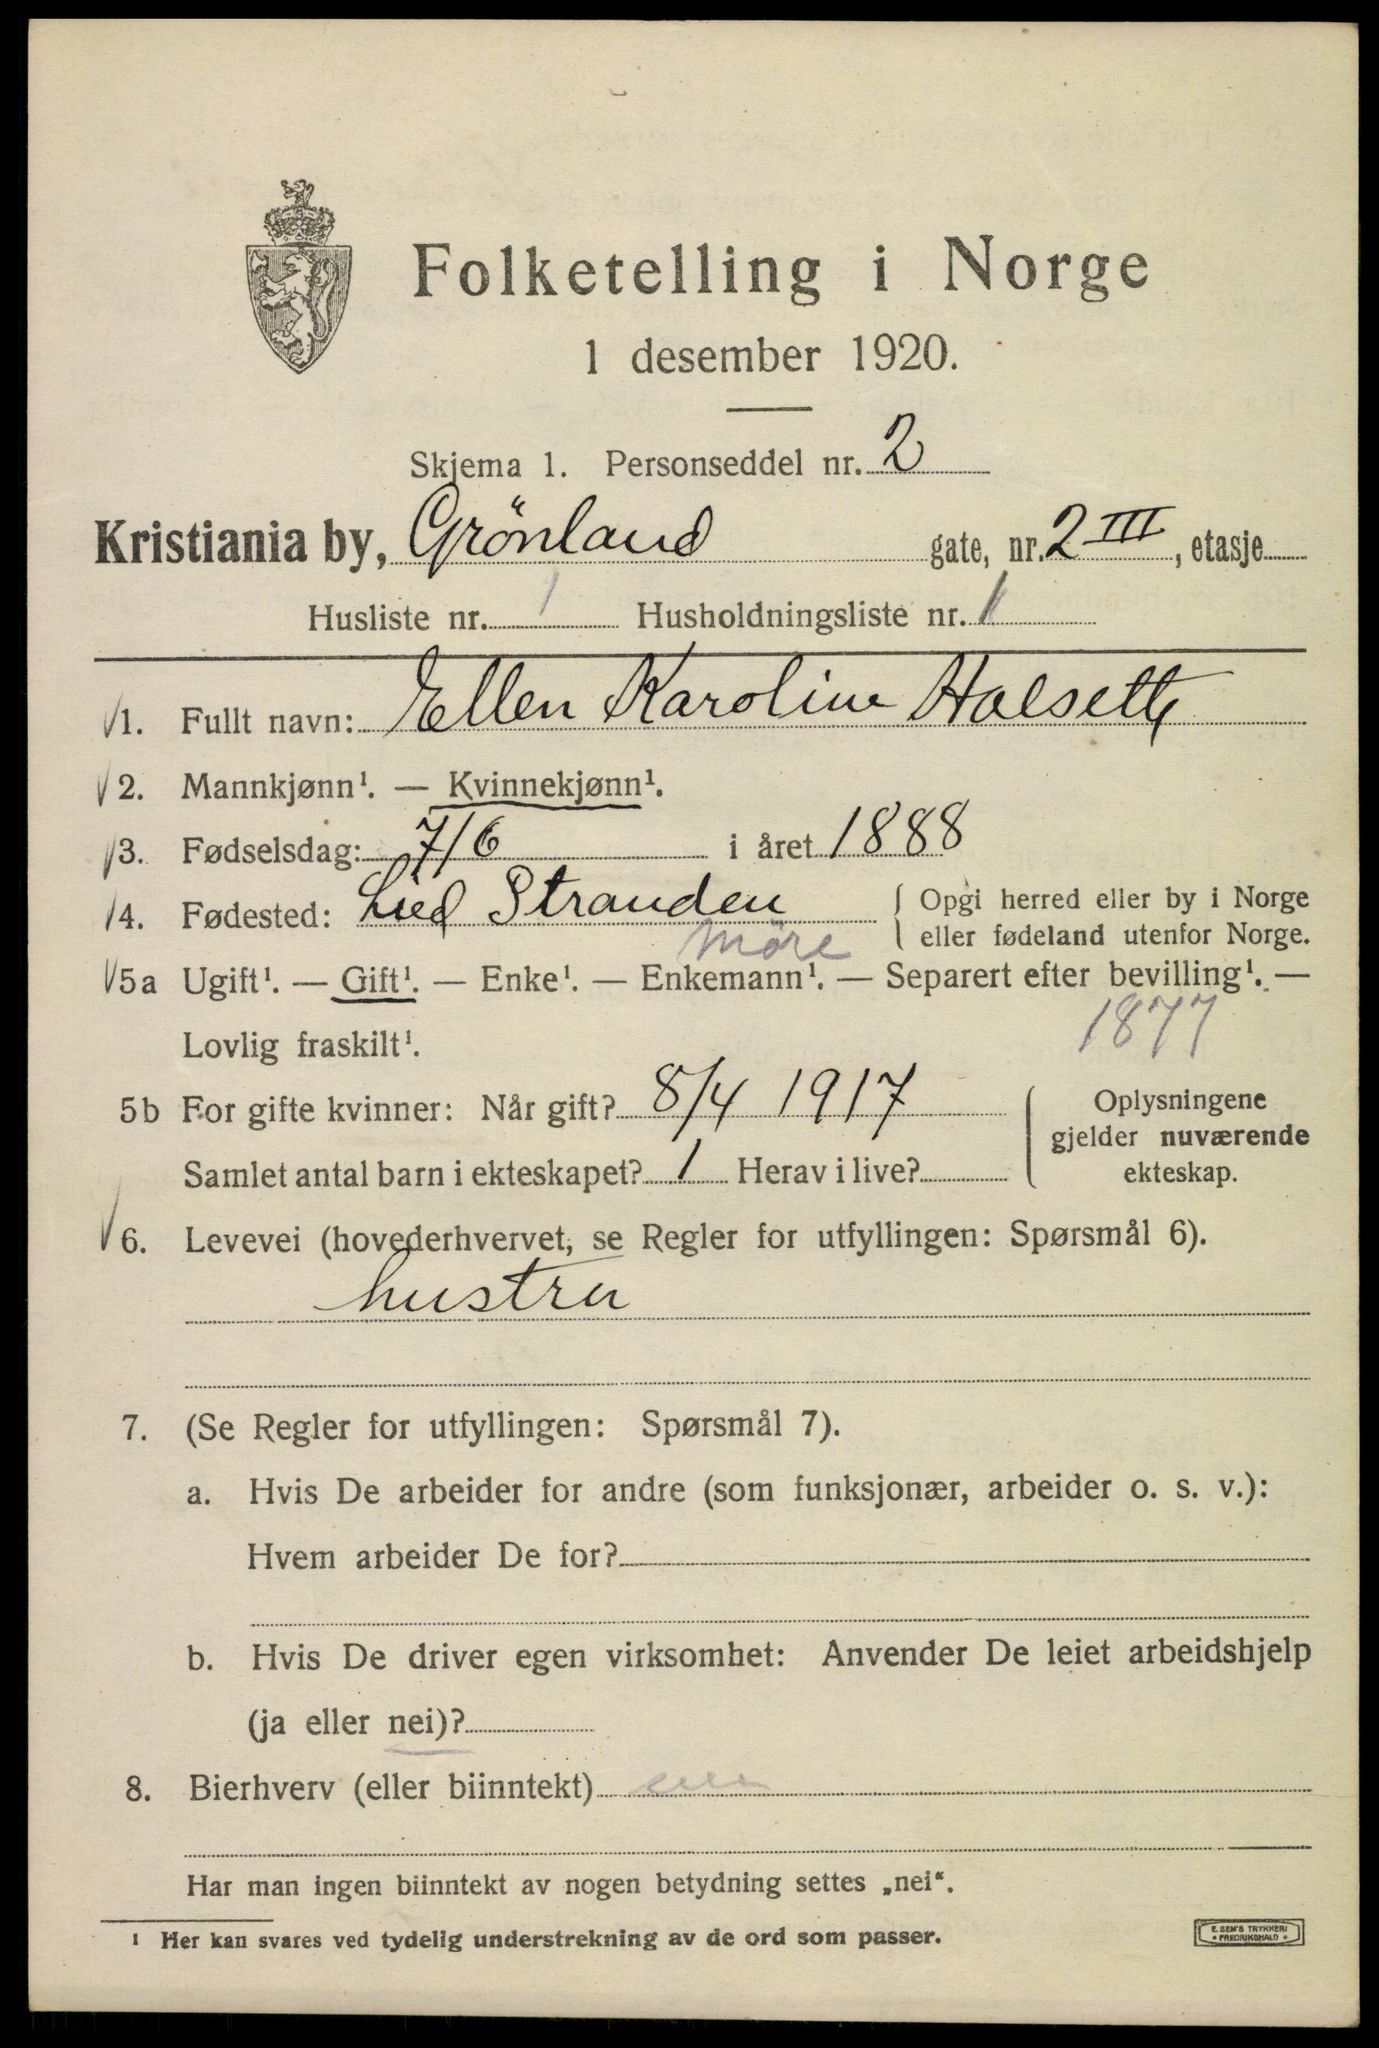 Folketelling i Norge
1 desember 1920.
Skjema 1. Personseddel nr. 2
Kristiania by, Grönland gate, nr. 2 III, etasje
Husliste nr. 1 Husholdningsliste nr. 1
1. Fullt navn: Ellen Karoline Halseth
2. Mannkjønn¹. — Kvinnekjønn¹.
3. Fødselsdag: 7/6 i året 1888
4. Fødested: Stranden { Opgi herred eller by i Norge
eller fødeland utenfor Norge.
Möre
5a Ugift¹. — Gift¹. — Enke¹. — Enkemann¹. — Separert efter bevilling¹. —
Lovlig fraskilt¹.
1877
5b For gifte kvinner: Når gift? 8/4 1917
Samlet antal barn i ekteskapet? 1 Herav i live?
{ Oplysningene
gjelder nuværende
ekteskap.
6. Levevei (hovederhvervet, se Regler for utfyllingen: Spørsmål 6).
hustru
7. (Se Regler for utfyllingen: Spørsmål 7).
a. Hvis De arbeider for andre (som funksjonær, arbeider o. s. v.):
Hvem arbeider De for?
b. Hvis De driver egen virksomhet: Anvender De leiet arbeidshjelp
(ja eller nei)?
8. Bierhverv (eller biinntekt)
Har man ingen biinntekt av nogen betydning settes „nei“.
¹ Her kan svares ved tydelig understrekning av de ord som passer.
E. SEM'S TRYKKERI
• FREDRIKSHALD •